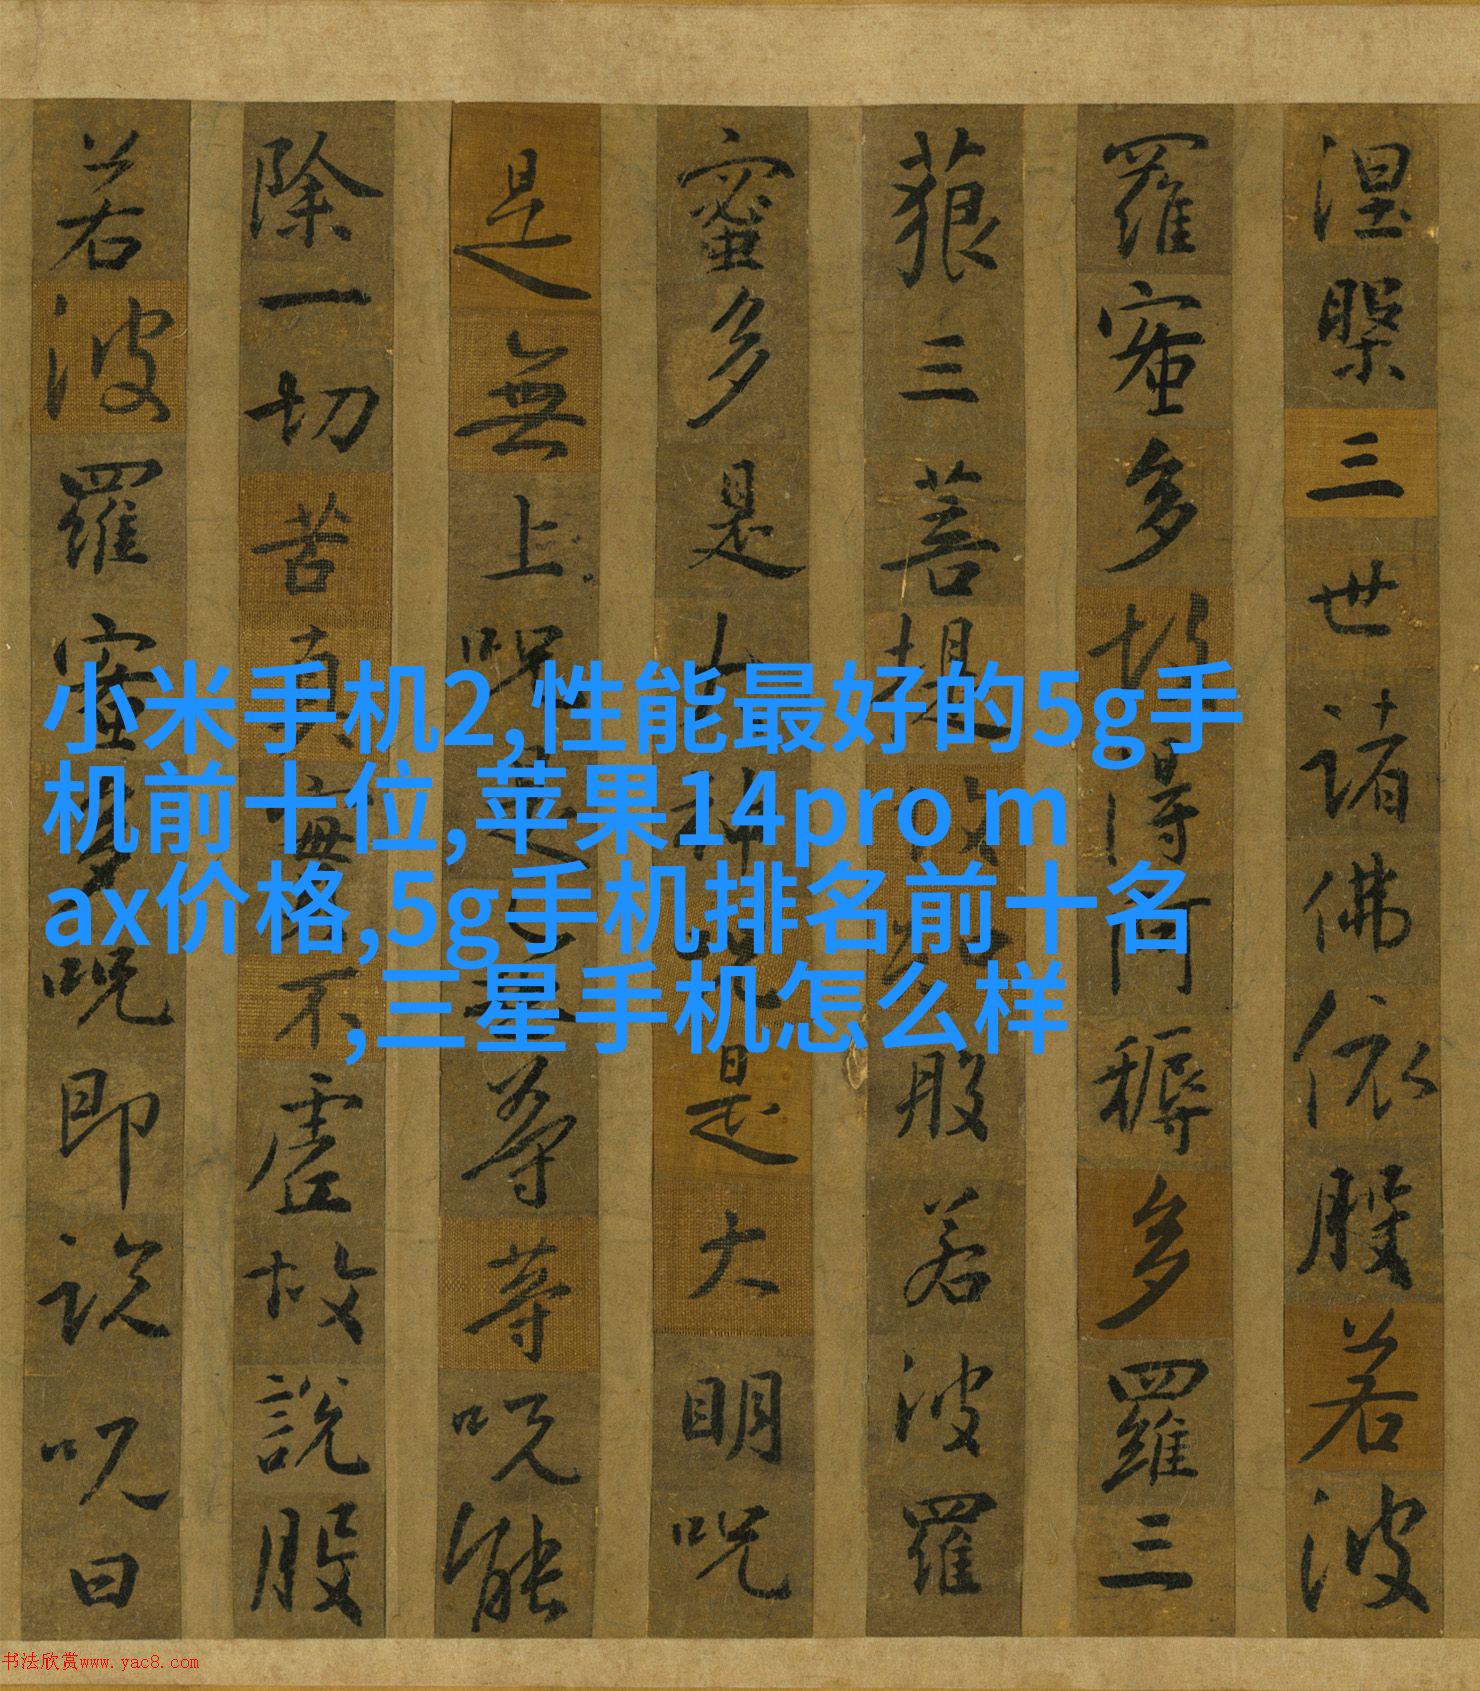 涅槃三世諸佛依般若波
羅蜜多故得阿耨多羅三
藐三菩提故知般若波羅
蜜多是大神呪是大明呪
是無上呪是無等等呪能
除一切苦真實不虛故說般
若波羅蜜多呪即說呪曰
小米手机2,性能最好的5g手
机前十位,苹果14pro m
ax价格,5g手机排名前十名
,三星手机怎么样
书法欣赏www.yac8.com